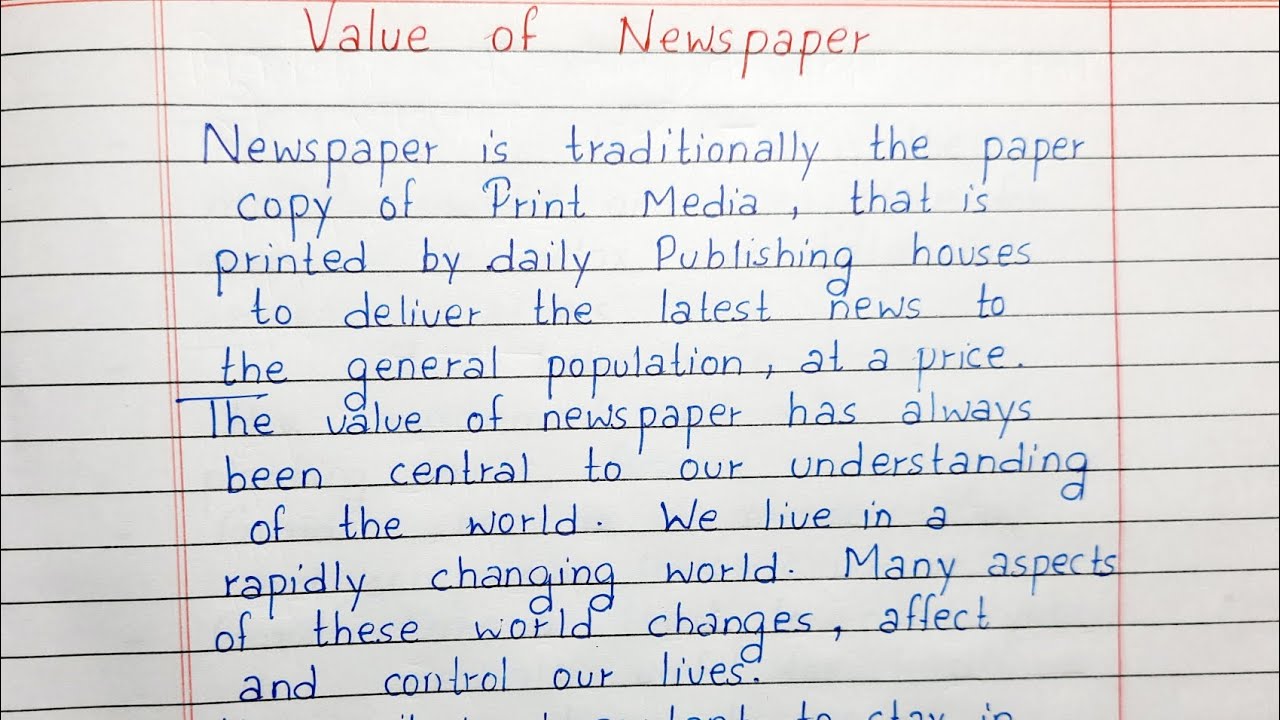 Value of Newspaper
Newspaper is traditionally the paper
copy of Print Media, that is
printed by daily Publishing houses
to deliver the latest news to
the general population, at a price.
The value of newspaper has always
been central to our understanding
of the world. We live in a
rapidly changing world. Many aspects
of these world changes, affect
and control our lives.
to stay in